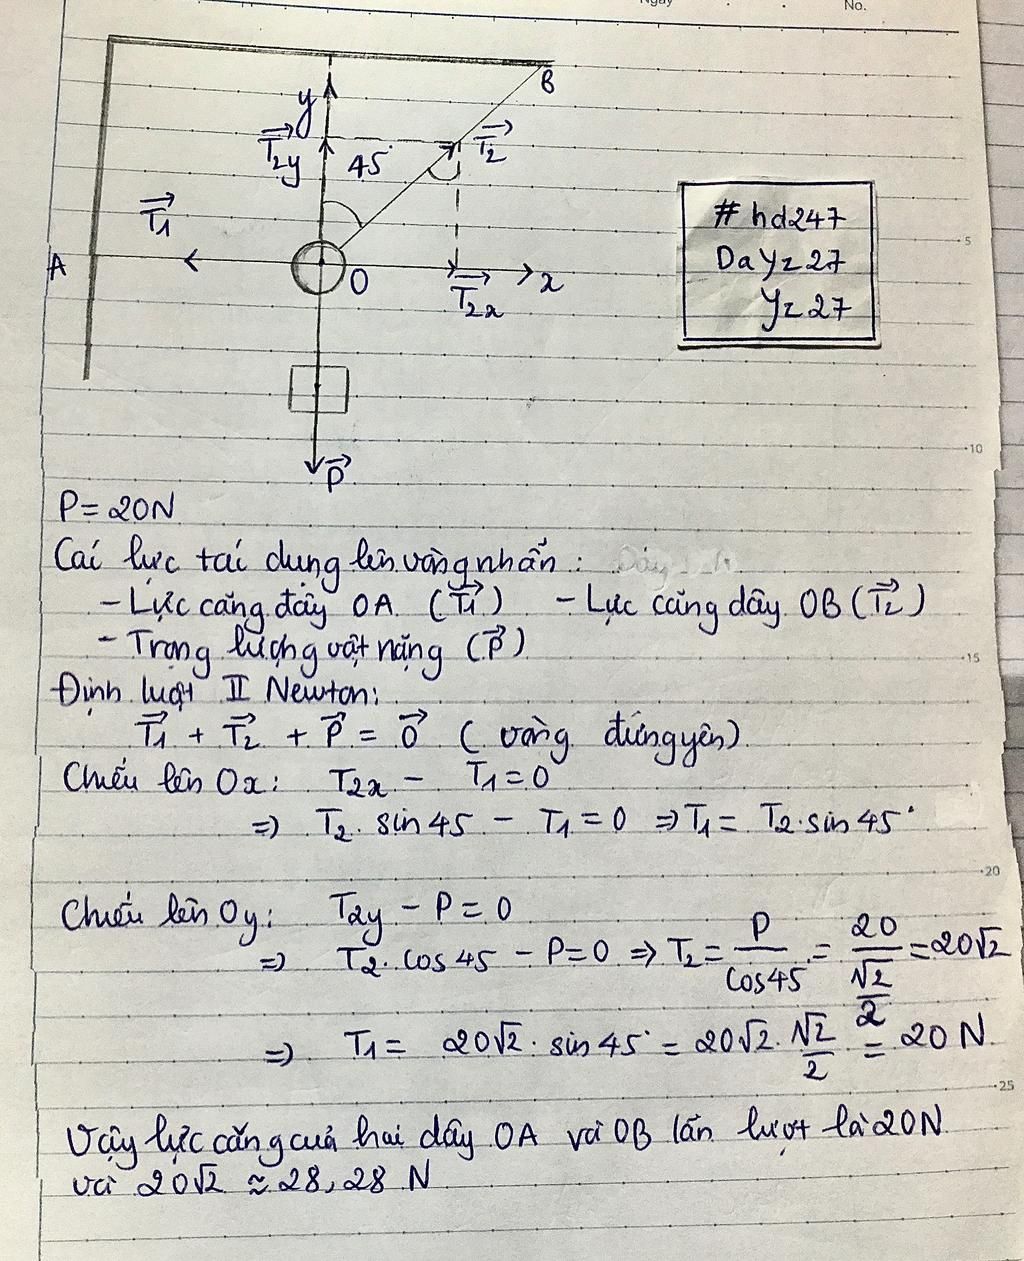 Ngày
No.
y
B
T2y
45°
T2
T1
A
O
T2x
x
P
# hd247
Dayz27
yz27
5
10
15
20
25
P = 20N
Các lực tác dụng lên vòng nhẫn:
- Lực căng dây OA (T1) - Lực căng dây OB (T2)
- Trọng lượng vật nặng (P)
Định luật II Newton:
T1 + T2 + P = 0 (vòng đứng yên)
Chiếu lên Ox: T2x - T1 = 0
=> T2 . sin 45 - T1 = 0 => T1 = T2 . sin 45°
Chiếu lên Oy: T2y - P = 0
=> T2 . cos 45 - P = 0 => T2 = P / cos 45 = 20 / (√2 / 2) = 20√2
=> T1 = 20√2 . sin 45° = 20√2 . √2 / 2 = 20 N
Vậy lực căng của hai dây OA và OB lần lượt là 20N
và 20√2 ≈ 28,28 N